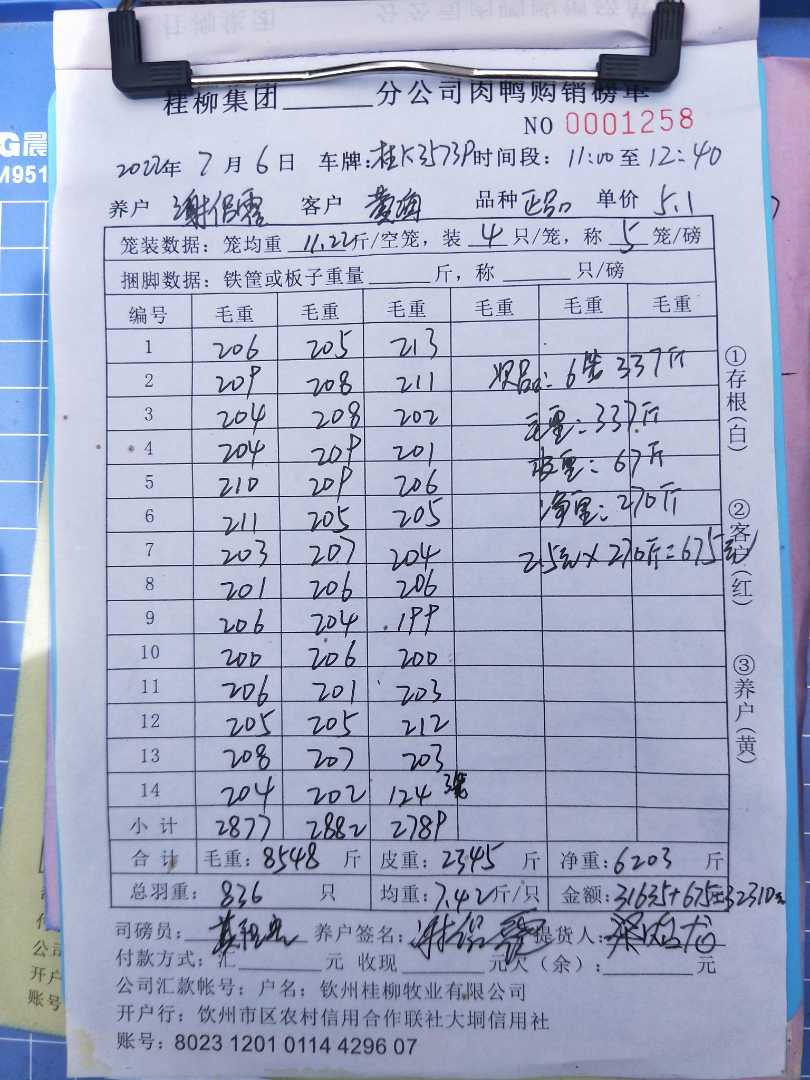 桂柳集团______分公司肉鸭购销磅单
NO 0001258
2022年 7 月 6 日 车牌:桂K3573P 时间段: 11:00 至 12:40
养户 谢保霞 客户 黄海 品种 正品 单价 5.1
笼装数据: 笼均重 11.22 斤/空笼, 装 4 只/笼, 称 5 笼/磅
捆脚数据: 铁筐或板子重量______斤, 称______只/磅
编号 毛重 毛重 毛重 毛重 毛重 毛重
1 206 205 213
2 209 208 211 次品: 6笼 337斤
3 204 208 202 毛重: 337斤
4 204 209 201 皮重: 67斤
5 210 209 206
6 211 205 205 净重: 270斤
7 203 207 204 2.5元×270斤=675元
8 201 206 206
9 206 204 199
10 200 206 200
11 206 201 203
12 205 205 212
13 208 207 203
14 204 202 124 3笼
小计 2877 2882 2789
合计 毛重: 8548 斤 皮重: 2345 斤 净重: 6203 斤
总羽重: 836 只 均重: 7.42 斤/只 金额: 31635+675=32310元
司磅员: 养户签名: 谢保霞 提货人:
付款方式: 汇______元 收现______元欠(余):______元
公司汇款帐号: 户名: 钦州桂柳牧业有限公司
开户行: 钦州市区农村信用合作联社大垌信用社
账号: 8023 1201 0114 4296 07
①存根(白)
②客户(红)
③养户(黄)
G晨
M951
公司
开户
账号